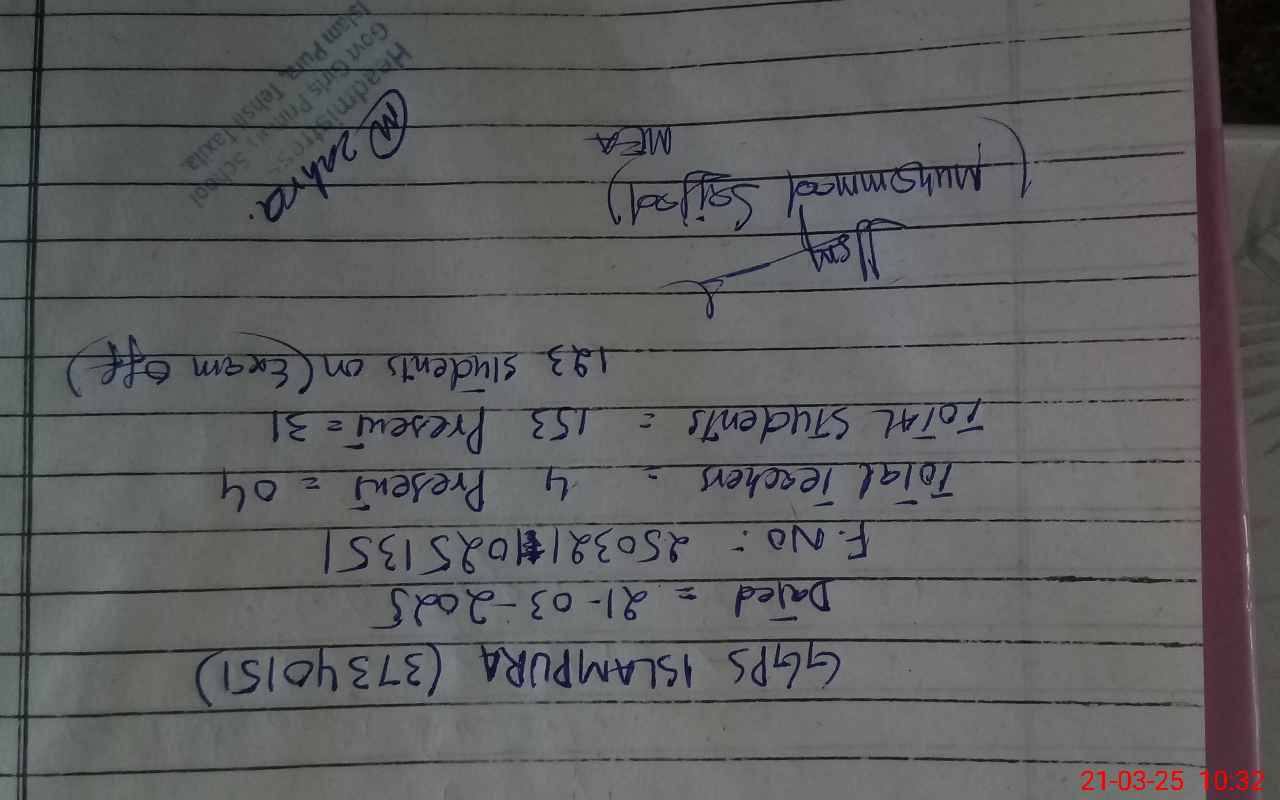 GGPS ISLAMPURA (37340151)
Dated = 21-03-2025
F.NO: 25032110251351
Total Teachers = 4 Present = 04
Total Students = 153 Present = 31
123 students on (Exam Off)
(Muhammad Sajjad)
MEA
Zahra
Headmistress
Govt Girls Primary School
Islam Pura, Tehsil Taxila
21-03-25 10:32